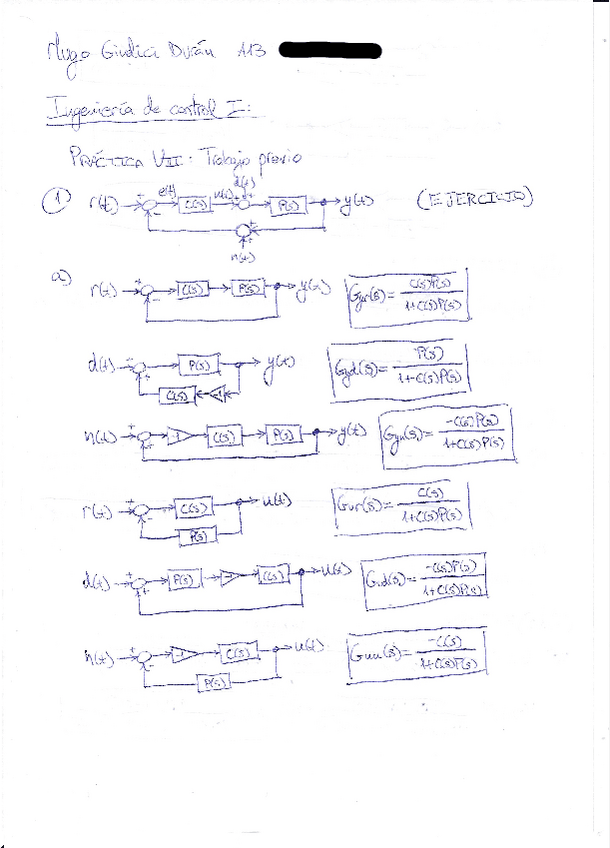 Hugo Giudici Durán A13
Ingeniería de control I:
PRÁCTICA VII: Trabajo previo
① r(t) + - e(t) C(s) u(t) + + d(t) P(s) y(t) (EJERCICIO)
+ +
n(t)
a)
r(t) + - C(s) P(s) y(t) Gyr(s) = C(s)P(s) / 1+C(s)P(s)
d(t) + + P(s) y(t) Gyd(s) = P(s) / 1+C(s)P(s)
C(s) -1
n(t) + + -1 C(s) P(s) y(t) Gyn(s) = -C(s)P(s) / 1+C(s)P(s)
r(t) + - C(s) u(t) Gur(s) = C(s) / 1+C(s)P(s)
P(s)
d(t) + + P(s) -1 C(s) u(t) Gud(s) = -C(s)P(s) / 1+C(s)P(s)
n(t) + - -1 C(s) u(t) Gun(s) = -C(s) / 1+C(s)P(s)
P(s)